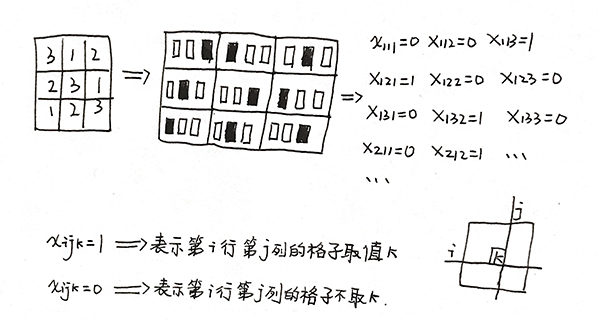 3 1 2
2 3 1
1 2 3
⟹
⟹
x₁₁₁=0 x₁₁₂=0 x₁₁₃=1
x₁₂₁=1 x₁₂₂=0 x₁₂₃=0
x₁₃₁=0 x₁₃₂=1 x₁₃₃=0
x₂₁₁=0 x₂₁₂=1 …
…
xᵢⱼₖ=1 ⟹表示第i行第j列的格子取值k
xᵢⱼₖ=0 ⟹表示第i行第j列的格子不取k.
j
i
k